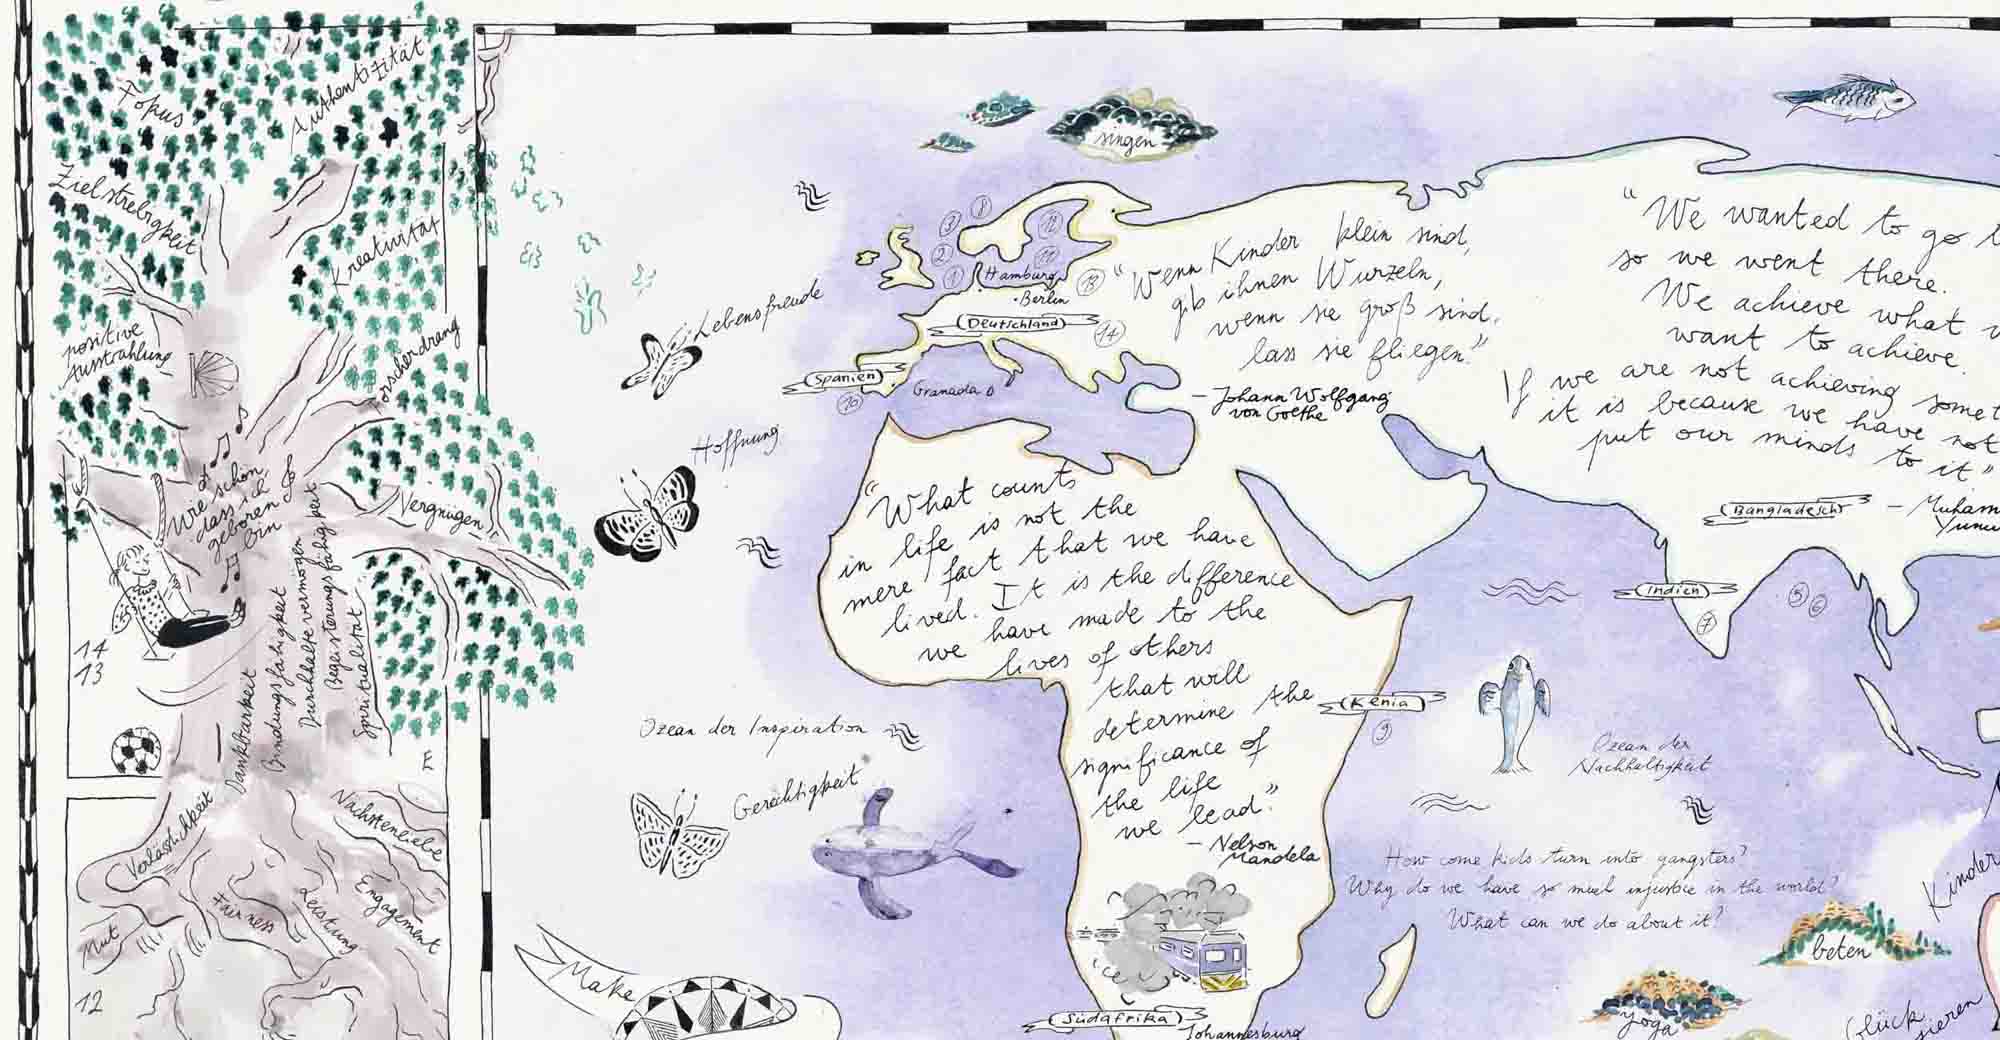 Xopus
Authentizität
Zielstrebigkeit
Kreativität
positive
Ausstrahlung
Forscherdrang
Vergnügen
Wie schön
dass ich
geboren
bin
Dankbarkeit
Bindungsfähigkeit
Durchhaltevermögen
Begeisterungsfähigkeit
Spiritualität
14
13
E
Verlässlichkeit
Nächstenliebe
Mut
Fairness
Leistung
Engagement
12
singen
Lebensfreude
Hoffnung
Ozean der Inspiration
Gerechtigkeit
Make
3
8
2
1
12
11
13
14
10
Hamburg
Berlin
Deutschland
Spanien
Granada
"Wenn Kinder klein sind,
gib ihnen Wurzeln,
wenn sie groß sind,
lass sie fliegen."
- Johann Wolfgang
von Goethe
"What counts
in life is not the
mere fact that we have
lived. It is the difference
we have made to the
lives of others
that will
determine the
significance of
the life
we lead."
- Nelson
Mandela
Kenia
9
Südafrika
Johannesburg
"We wanted to go
so we went there.
We achieve what
want to achieve.
If we are not achieving
it is because we have not
put our minds to it"
Bangladesch
Indien
5
6
7
Ozean der
Nachhaltigkeit
How come kids turn into gangsters?
Why do we have so much injustice in the world?
What can we do about it?
Kinder
beten
yoga
Glück